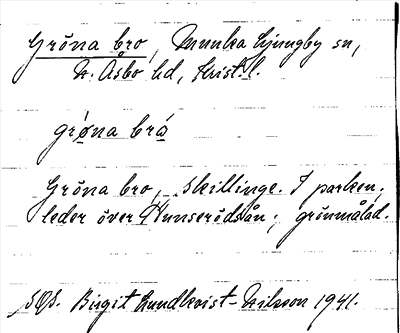 Gröna bro, Munka Ljungby sn,
N. Åsbo hd, Krist. l.
grǿna brá
Gröna bro, Skillinge. I parken,
leder över Hunserödsån; grönmålad.
Birgit Lundkvist-Nilsson 1941.